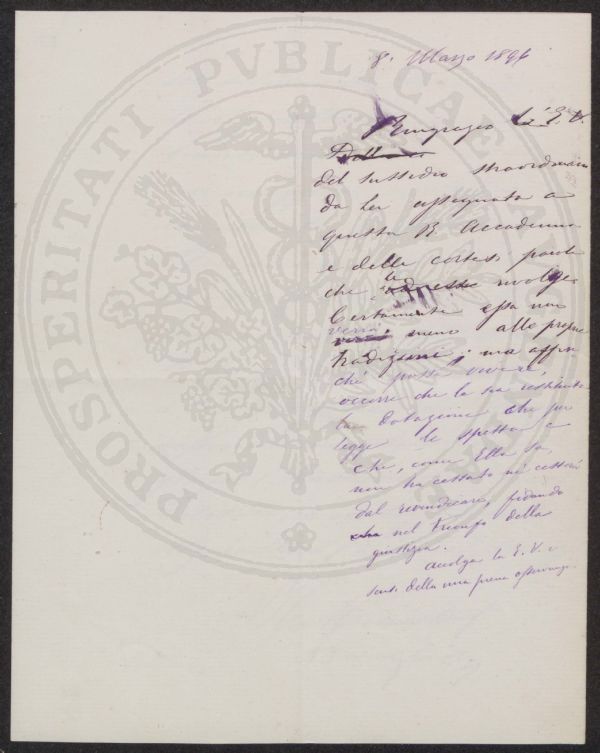 PROSPERITATI PVBLICAE AVGENDAE
8. Marzo 189
Ringrazio L'E. V.
Dell
del sussidio straordinario
da Lei assegnato a
questa R. Accademia
e delle cortesi parole
che le rivolge.
Certamente essa non
verrà meno alle proprie
tradizioni; ma affin
ché possa vivere,
occorre che le sia restituita
la Dotazione che per
legge le spetta e
che, come Ella sa,
non ha cessato né cesserà
dal rivendicare, fidando
nel trionfo della
giustizia.
Accolga la E. V. i
sensi della mia piena osservanza.